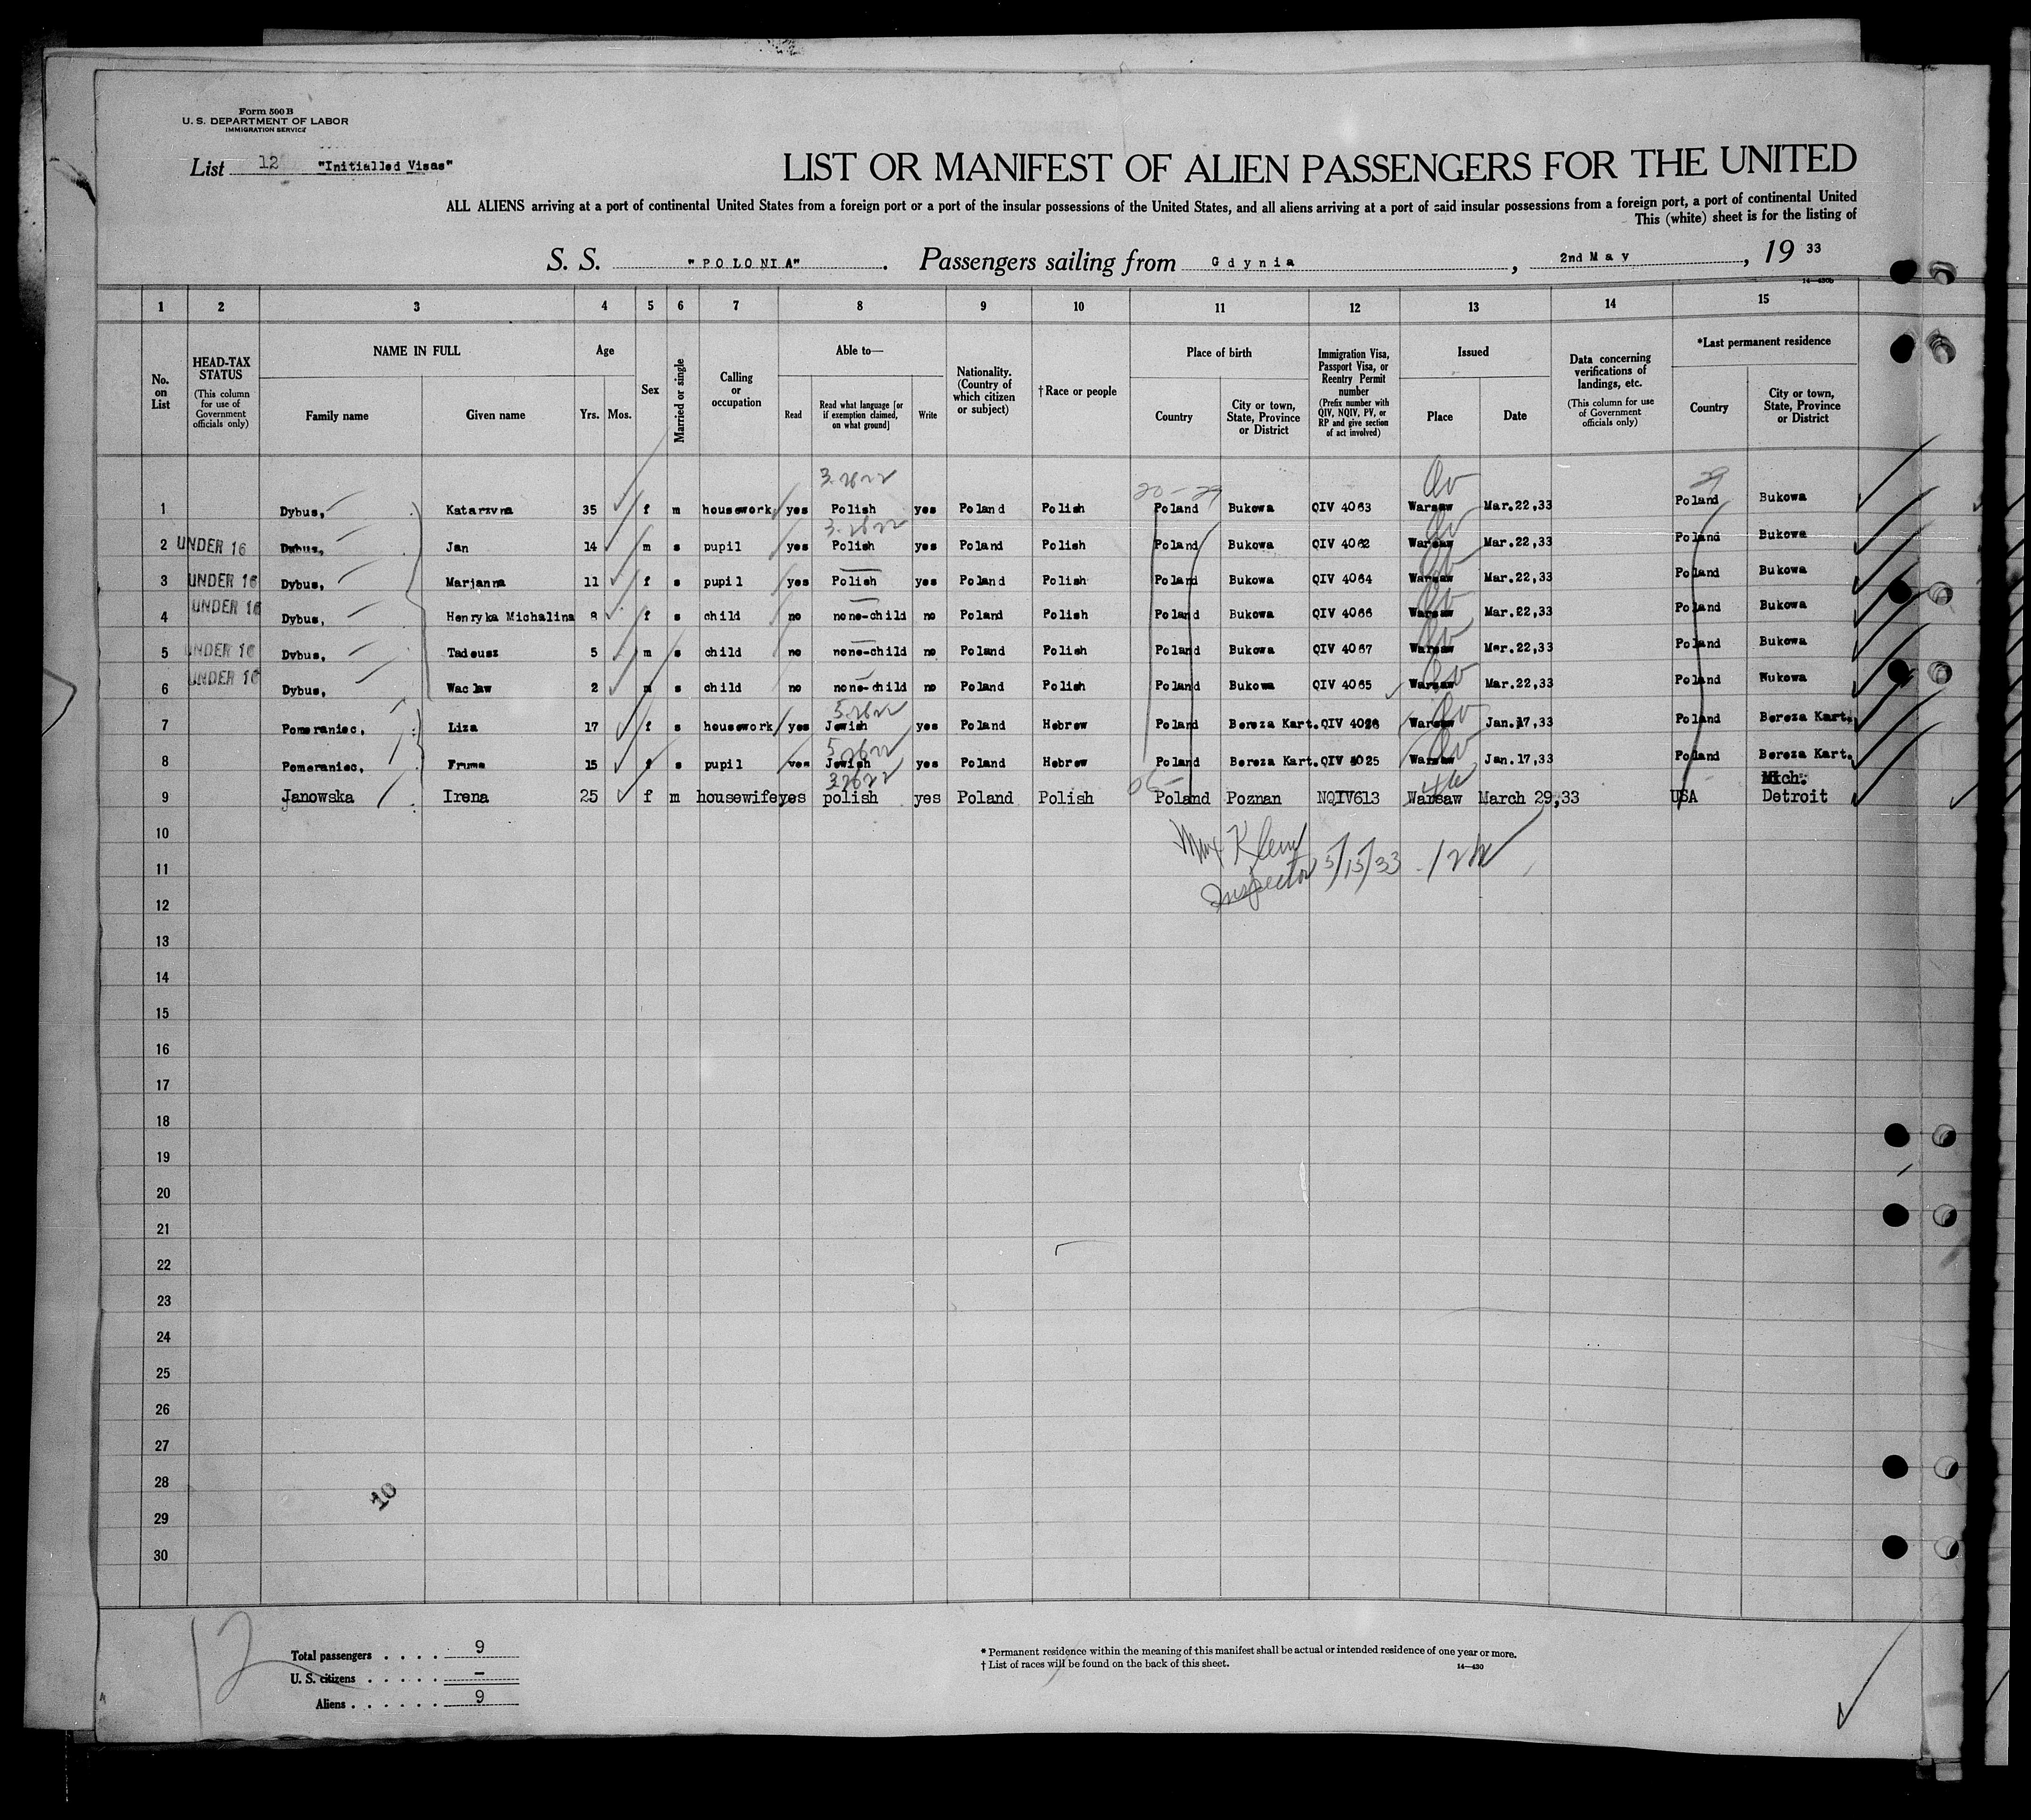 Form 500 B
U. S. DEPARTMENT OF LABOR
IMMIGRATION SERVICE
List 12 "Initialled Visas"
LIST OR MANIFEST OF ALIEN PASSENGERS FOR THE UNITED
ALL ALIENS arriving at a port of continental United States from a foreign port or a port of the insular possessions of the United States, and all aliens arriving at a port of said insular possessions from a foreign port, a port of continental United
This (white) sheet is for the listing of
S. S. "POLONIA". Passengers sailing from Gdynia, 2nd May, 19 33
14—430b
1 2 3 4 5 6 7 8 9 10 11 12 13 14 15
No. on List
HEAD-TAX STATUS (This column for use of Government officials only)
NAME IN FULL
Family name
Given name
Age
Yrs. Mos.
Sex
Married or single
Calling or occupation
Able to—
Read
Read what language [or if exemption claimed, on what ground]
Write
Nationality. (Country of which citizen or subject)
† Race or people
Place of birth
Country
City or town, State, Province or District
Immigration Visa, Passport Visa, or Reentry Permit number (Prefix number with QIV, NQIV, PV, or RP and give section of act involved)
Issued
Place
Date
Data concerning verifications of landings, etc. (This column for use of Government officials only)
*Last permanent residence
Country
City or town, State, Province or District
3-2622
20-29
29
1 Dybus, Katarzyna 35 f m housework yes Polish yes Poland Polish Poland Bukowa QIV 4063 Warsaw Mar.22,33 Poland Bukowa
3-2622
2 UNDER 16 Dybus, Jan 14 m s pupil yes Polish yes Poland Polish Poland Bukowa QIV 4062 Warsaw Mar.22,33 Poland Bukowa
3 UNDER 16 Dybus, Marjanna 11 f s pupil yes Polish yes Poland Polish Poland Bukowa QIV 4064 Warsaw Mar.22,33 Poland Bukowa
4 UNDER 16 Dybus, Henryka Michalina 8 f s child no none-child no Poland Polish Poland Bukowa QIV 4066 Warsaw Mar.22,33 Poland Bukowa
5 UNDER 16 Dybus, Tadeusz 5 m s child no none-child no Poland Polish Poland Bukowa QIV 4067 Warsaw Mar.22,33 Poland Bukowa
6 UNDER 16 Dybus, Waclaw 2 m s child no none-child no Poland Polish Poland Bukowa QIV 4065 Warsaw Mar.22,33 Poland Nukowa
5-2622
7 Pomeraniec, Liza 17 f s housework yes Jewish yes Poland Hebrew Poland Bereza Kart. QIV 4026 Warsaw Jan.17,33 Poland Bereza Kart.
5-2622
8 Pomeraniec, Fruma 15 f s pupil yes Jewish yes Poland Hebrew Poland Bereza Kart. QIV 4025 Warsaw Jan.17,33 Poland Bereza Kart.
32622
Mich.
9 Janowska Irena 25 f m housewife yes polish yes Poland Polish Poland Poznan NQIV613 Warsaw March 29,33 USA Detroit
10
Max Klein
11
Inspector 5/15/33
12
13
14
15
16
17
18
19
20
21
22
23
24
25
26
27
28
10
29
30
12
Total passengers . . . . 9
U. S. citizens . . . . . —
Aliens . . . . . . 9
* Permanent residence within the meaning of this manifest shall be actual or intended residence of one year or more.
† List of races will be found on the back of this sheet.
14—430